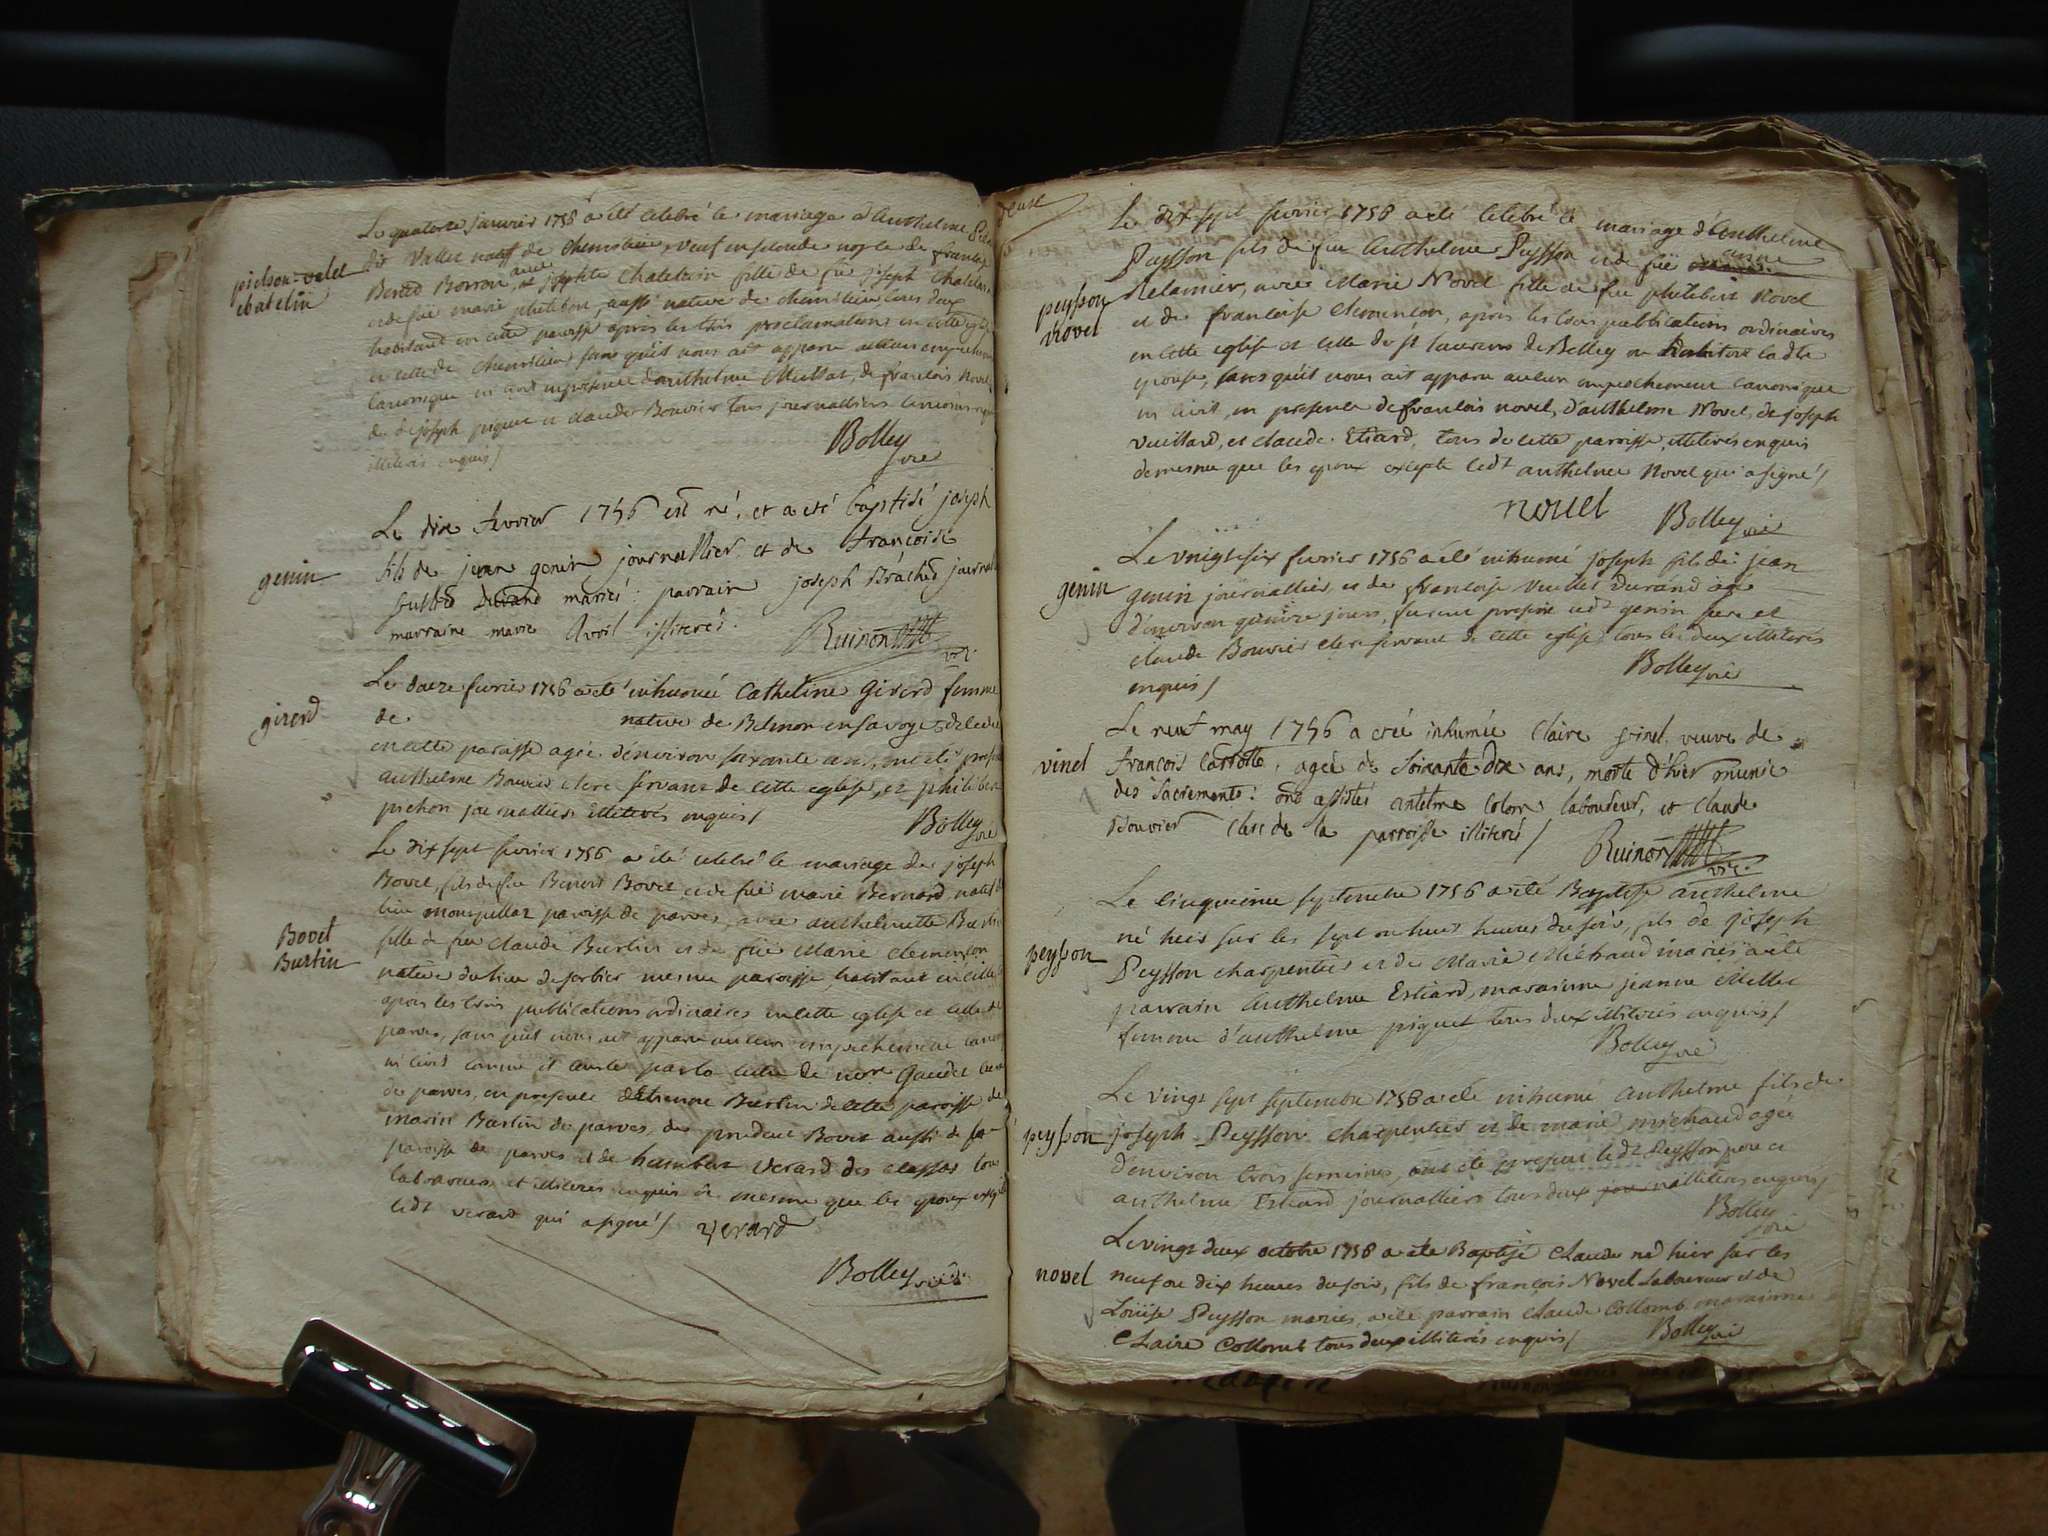 pichon-valet
chatelin
Le quatorze janvier 1756 a été celebré le mariage d'Authelme
dit Vallet natif de Chemilieu, veuf en secondes nopces de françoise
Benoid Borron, avec josephte Chatelain fille de feu joseph Chatelain
et de füe marie philibon, aussi native de chemilieu tous deux
habitant en cette paroisse après les trois proclamations en cette eglise
et celle de chemilieu sans qu'il nous ait apparu aucun empechement
Canonique ni civil en presence d'authelme Mussat, de francois Novel
de joseph piquet et claude Bouvier tous journalliers temoins requis
illiterés enquis /
Bolley vic
genin
Le dix fevrier 1756 est né, et a eté baptisé joseph
fils de jean genin journallier et de françoise
durand mariés: parrain joseph Brachet journal
marraine marie Avril illiterés.
Ruinon vic.
girerd
Le douze fevrier 1756 a été inhumée Catheline Girerd femme
de native de Belmon en Savoye, decedée
en cette paroisse agée d'environ soixante ans, ont été presens
authelme Bouvier clerc servant de cette eglise, et philibert
pichon journallier illiterés enquis /
Bolley vic
Bovet
Burtin
Le dix sept fevrier 1756 a été celebré le mariage de joseph
Bovet, fils de feu Benoit Bovet et de füe marie Bernard, natif du
lieu monpellaz paroisse de parves, avec authelmette Burtin
fille de feu claude Burtin et de füe Marie Clemençon
native du lieu de sorbier mesme paroisse, habitant en celle
apres les trois publications ordinaires en cette eglise et celle de
parves, sans qu'il nous ait apparu aucun empechement canon
ni civil comme il conste par la lettre de mre Gaudet curé
de parves, en presence d'Etienne Burtin de cette paroisse de
marin Burtin de parves, de prudent Bovet aussi de la
paroisse de parves et de humbert Verard des classes tous
laboureurs et illiterés enquis de mesme que les epoux excepté
ledt verard qui a signé /
Verard
Bolley vic
deuse
peysson
Novel
Le dix sept fevrier 1756 a été celebré le mariage d'Authelme
Peysson fils de feu Authelme Peysson et de füe anne
Melainier, avec Marie Novel fille de feu philibert Novel
et de françoise Clemençon, apres les trois publications ordinaires
en cette eglise et celle de st laurent de Belley ou habitoit ladte
epouse, sans qu'il nous ait apparu aucun empechement canonique
ni civil, en presence de francois novel, d'authelme Novel, de joseph
Vuillard, et claude Etiard, tous de cette paroisse illiterés enquis
de mesme que les epoux excepté ledt authelme Novel qui a signé /
novel
Bolley vic
genin
Le vingt six fevrier 1756 a été inhumé joseph fils de jean
genin journallier, et de françoise veullet durand agé
d'environ quinze jours, furent presens ledt genin pere et
claude Bouvier clerc servant de cette eglise, tous les deux illiterés
enquis /
Bolley vic
vinel
Le neuf may 1756 a eté inhumée Claire vinel veuve de
françois Carrotte, agée de soixante dix ans, morte d'hier munie
des sacrements: ont assistés antelme Colon laboureur, et claude
Bouvier clerc de la parroisse illiterés /
Ruinon vic.
peysson
Le cinquieme septembre 1756 a été Baptisé authelme
né hier sur les sept ou huit heures du soir, fils de joseph
Peysson charpentier et de Marie Michaud mariés a été
parrain Authelme Estiard, maraine jeanne Millet
femme d'authelme piquet tous deux illiterés enquis /
Bolley vic
peysson
Le vingt sept septembre 1756 a été inhumé authelme fils de
joseph Peysson charpentier et de marie michaud agé
d'environ trois semaines, ont été presens ledt Peysson pere et
authelme Estiard journalliers tous deux illiterés enquis /
Bolley vic
novel
Le vingt deux octobre 1756 a été Baptisé Claude né hier sur les
neuf ou dix heures du soir, fils de françois Novel laboureur et de
Loüise Peysson mariés, a été parrain claude Collomb maraine
Claire Collomb tous deux illiterés enquis /
Bolley vic